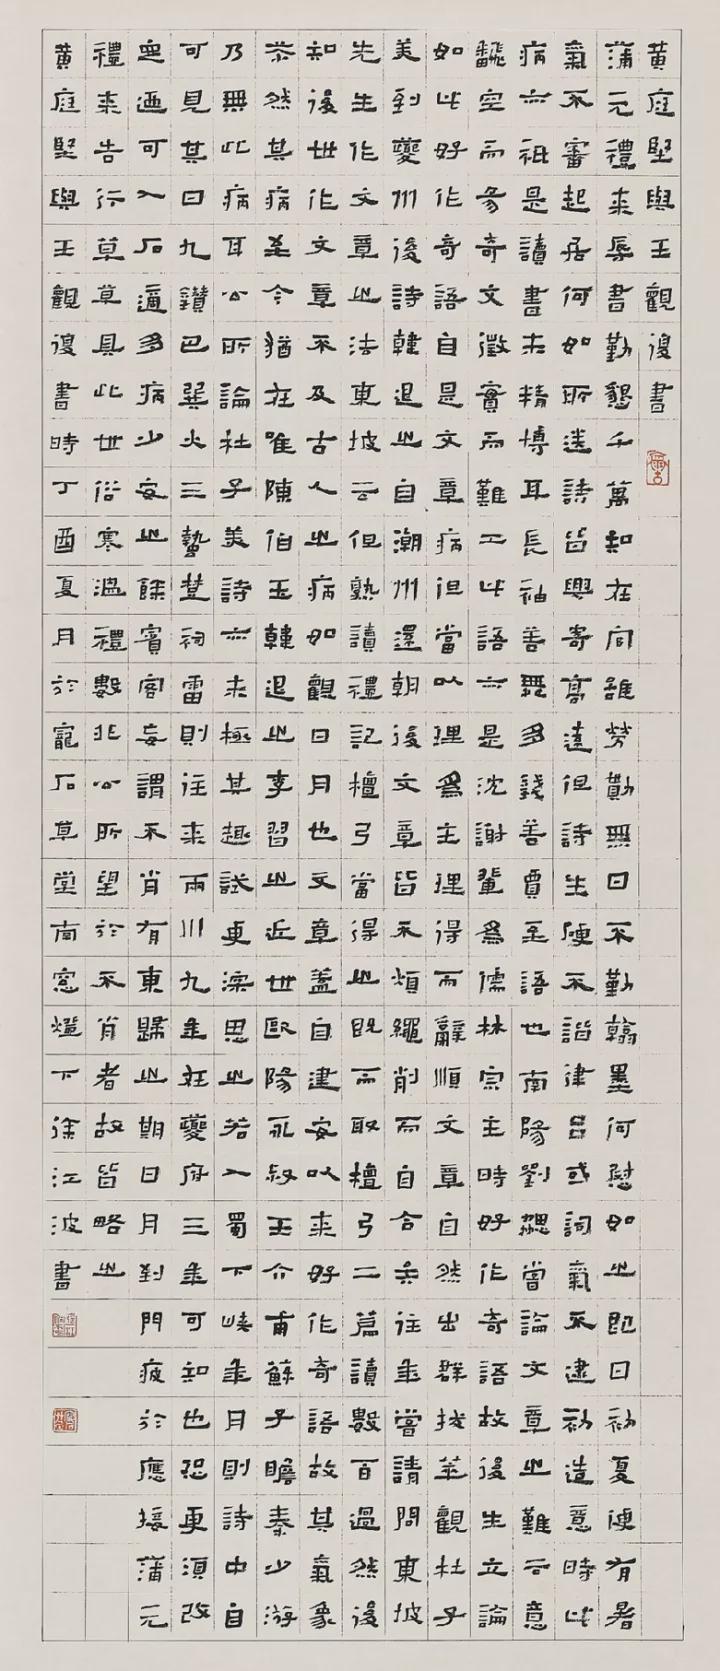 黄庭堅與王觀復書
蒲元禮來辱書勤懇千萬知在同雖勞勩無日不勤翰墨何慰如之即日初夏便有暑
氣不審起居何如所送詩皆興寄高遠但詩生硬不諧律呂或詞氣不逮初造意時此
病亦衹是讀書未精博耳長袖善舞多錢善賈至語也南陽劉勰嘗論文章之難云意
翻空而易奇文徵實而難工此語亦是沈謝輩為儒林宗主時好作奇語故後生立論
如此好作奇語自是文章病但當以理為主理得而辭順文章自然出群拔萃觀杜子
美到夔州後詩韓退之自潮州還朝後文章皆不煩繩削而自合矣往年嘗請問東坡
先生作文章之法東坡云但熟讀禮記檀弓當得之既而取檀弓二篇讀數百過然後
知後世作文章不及古人之病如觀日月也文章蓋自建安以來好作奇語故其氣象
苶然其病至今猶在唯陳伯玉韓退之李習之近世歐陽永叔王介甫蘇子瞻秦少游
乃無此病耳公所論杜子美詩亦未極其趣試更深思之若入蜀下峽年月則詩中自
可見其曰九鑽巴巽火三蟄楚祠雷則往來兩川九年在夔府三年可知也恐更須改
定迺可入石適多病少安之餘賓客妄謂不肖有東歸之期日月到門疲於應接蒲元
禮來告行草草具此世俗寒溫禮數非公所望於不肖者故皆略之
黄庭堅與王觀復書時丁酉夏月於寵石草堂南窓燈下徐江波書